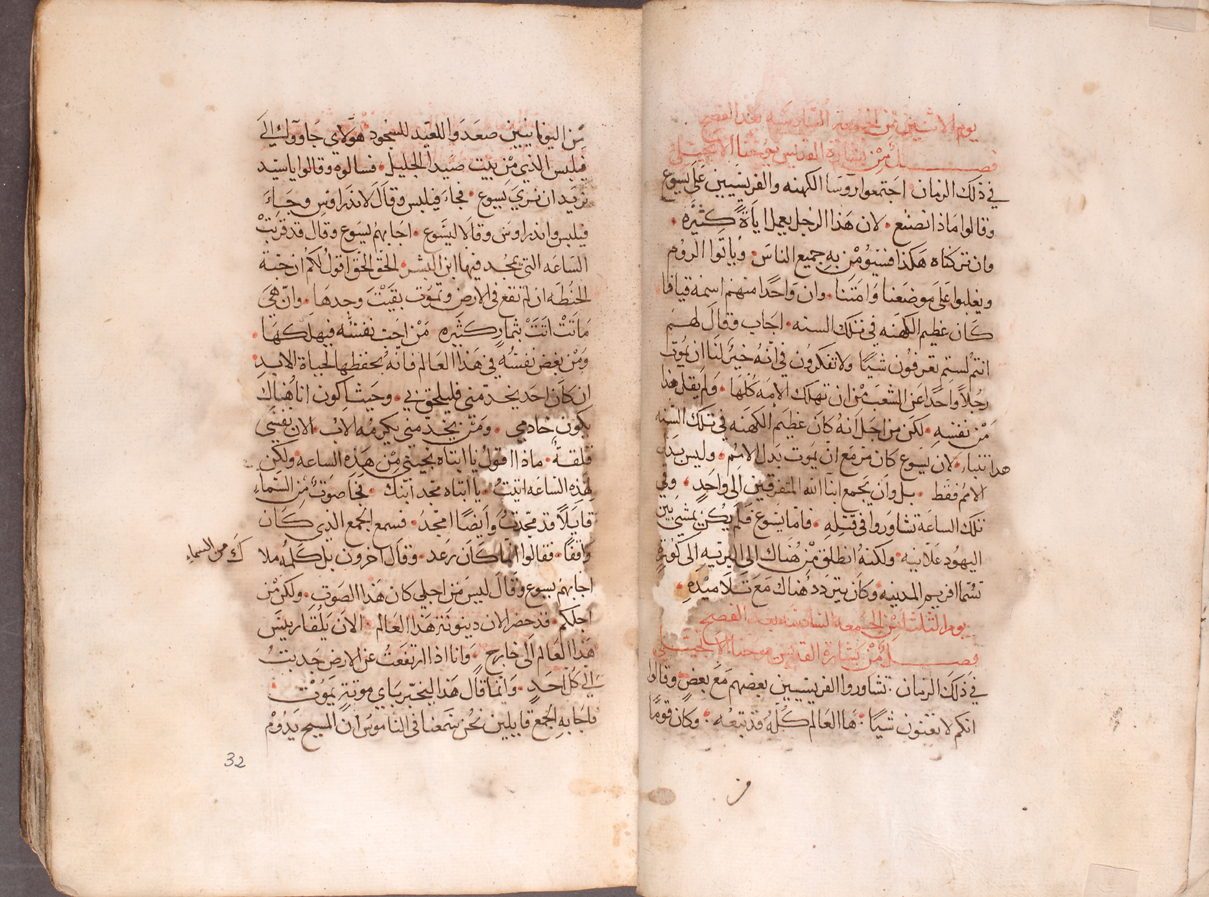 يوم الاثنين من الجمعه السادسه بعد الفصح
فصل من بشارة القديس يوحنا الانجيلي
في ذلك الزمان · اجتمعوا روسا الكهنه والفريسيين على يسوع
وقالوا ماذا نصنع · لان هذا الرجل يعمل اياة كثيره ·
وان تركناه هكذا فسيومن به جميع الناس · وياتوا الروم
ويغلبوا على موضعنا وامتنا · وان واحدا منهم اسمه قيافا
كان عظيم الكهنه في تلك السنه · اجاب وقال لهم
انتم لستم تعرفون شيا ولا تفكرون في انه خير لنا ان يموت
رجلا واحدا عن الشعب من ان تهلك الامه كلها · ولم يقل هذا
من نفسه · لكن من اجل انه كان عظيم الكهنه في تلك السنه
هذا تنبا · لان يسوع كان مزمع ان يموت بدل الامم · وليس بدل
الامم فقط · بل وان يجمع ابنا الله المتفرقين الى واحد · وفي
تلك الساعة تشاوروا في قتله · واما يسوع فلم يكن يمشي بين
اليهود علانيه · ولكنه انطلق من هناك الى البريه الى كورة
تسما افريم المدينه وكان يتردد هناك مع تلاميذه ·
يوم الثلثا من الجمعه السادسه بعد الفصح
فصل من بشارة القديس يوحنا الانجيلي
في ذلك الزمان · تشاوروا الفريسيين بعضهم مع بعض وقالوا
انكم لا تغنون شيا · ها العالم كله قد تبعه · وكان قوما
من اليونانيين صعدوا للعيد للسجود هولاي جاو وليك الى
فيلبس الذي من بيت صيدا الجليل · فسالوه وقالوا يا سيد
نريد ان نري يسوع · فجاء فيلبس وقال لاندراوس وجاء
فيلبس واندراوس وقالا ليسوع · اجابهم يسوع وقال قد قربت
الساعه التي يمجد فيها ابن البشر · الحق الحق اقول لكم ان حبة
الحنطه ان لم تقع في الارض وتموت بقيت وحدها · وان هي
ماتت اتت بثمار كثيره من احب نفسه فيهلكها ·
ومن بغض نفسه في هذا العالم فانه يحفظها لحياة الابد ·
ان كان احد يخدمني فليلحق بي · وحيث اكون انا هناك
يكون خادمي · ومن يخدمني يكرمه الاب · الان نفسي
قلقة · ماذا اقول يا ابتاه نجيني من هذه الساعه ولكن
لهذه الساعه اتيت · يا ابتاه مجد ابنك · فجا صوت من السماء
قايلا قد مجدت وايضا امجد · فسمع الجمع الذي كان
واقفا · فقالوا انما كان رعد · وقال اخرون بل كلمه ملا
ك من السماء
اجابهم يسوع وقال ليس من اجلي كان هذا الصوت · ولكن من
اجلكم · قد حضر الان دينونة هذا العالم · الان يلقا ريس
هذا العالم الى خارج · وانا اذا ارتفعت عن الارض جذبت
الي كل احد · وانما قال هذا ليخبر باي موتة يموت ·
فاجابه الجمع قايلين نحن سمعنا في الناموس ان المسيح يدوم
32